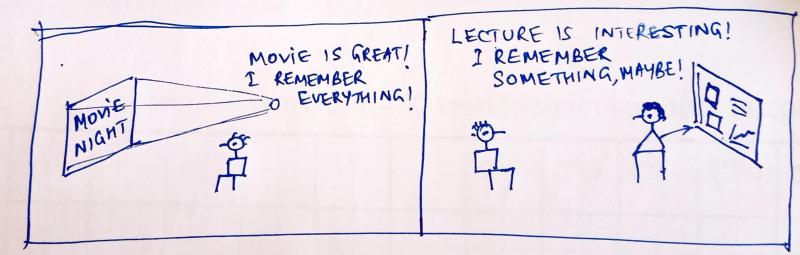 MOVIE IS GREAT!
I REMEMBER
EVERYTHING!
MOVIE
NIGHT
LECTURE IS INTERESTING!
I REMEMBER
SOMETHING, MAYBE!